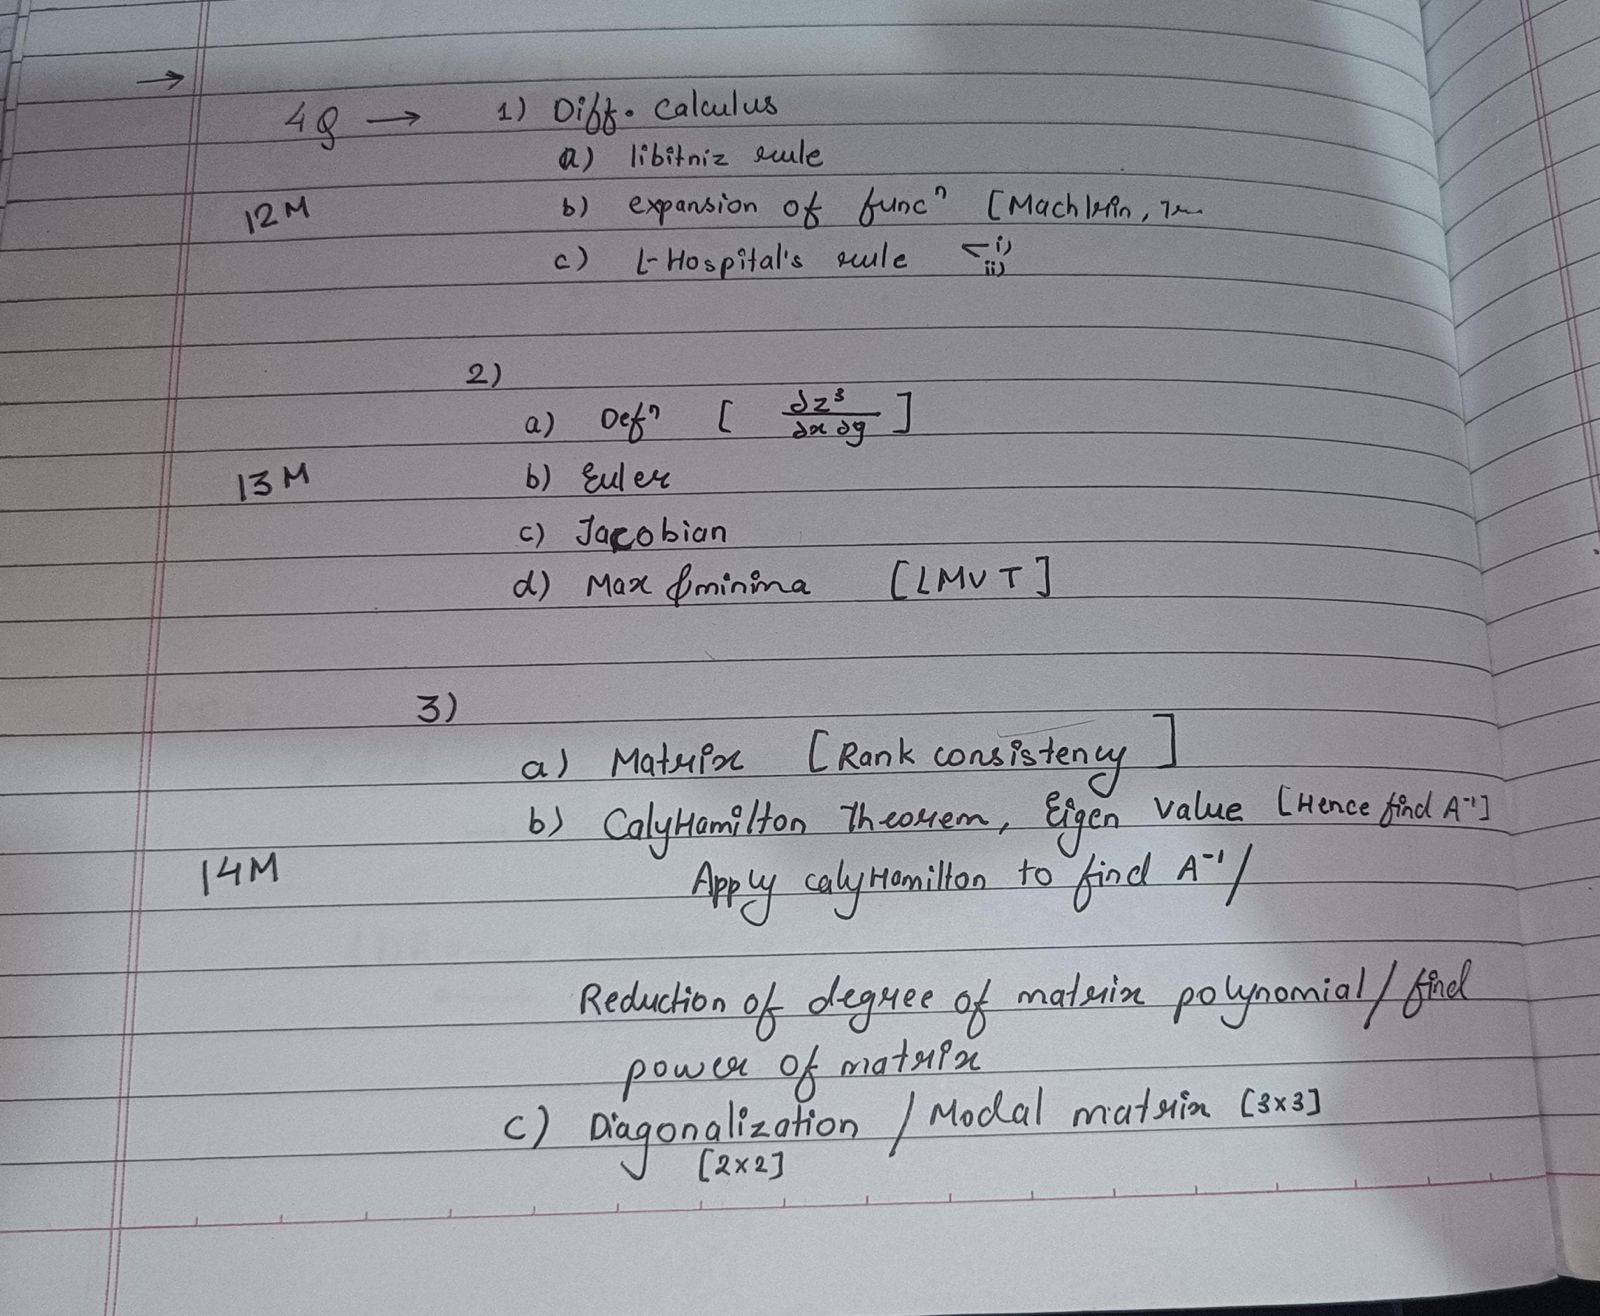 →
4Q → 1) Diff. Calculus
a) libitniz rule
12M b) expansion of funcⁿ [Machlrin,
c) L-Hospital's rule < i) ii)
2)
a) Defⁿ [ ∂z³/∂x∂y ]
13M b) Euler
c) Jacobian
d) Max & minima [LMVT]
3)
a) Matrix [Rank consistency]
b) CalyHamilton Theorem, Eigen value [Hence find A⁻¹]
14M Apply calyHamilton to find A⁻¹/
Reduction of degree of matrix polynomial/find
power of matrix
c) Diagonalization / Modal matrix [3x3]
[2x2]